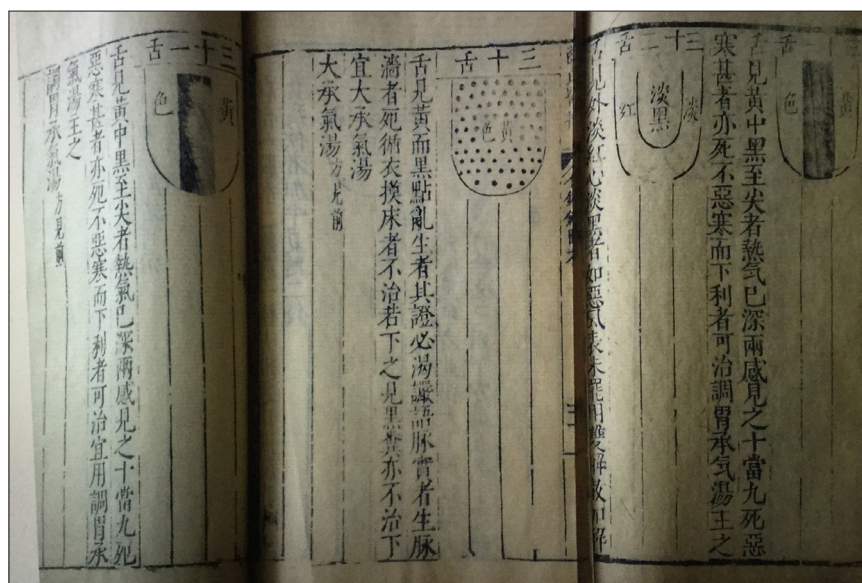 三十一舌
色
舌見黃中黑至尖者熱气已深兩感見之十當九死惡
寒甚者亦死不惡寒而下利者可治調胃承气湯王之
三十二舌
淡
淡黑
紅
舌見外淡紅心淡黑者如惡風表未罷用雙解散加解
三十舌
黃
色
舌見黃而黑點亂生者其證必渴譫語脉實者生脉
濇者死循衣摸床者不治若下之見黑糞亦不治下
宜大承氣湯
大承氣湯方見前
三十一舌
黃
色
舌見黃中黑至尖者熱氣已深兩感見之十當九死
惡寒甚者亦死不惡寒而下利者可治宜用調胃承
氣湯王之
調胃承氣湯方見前